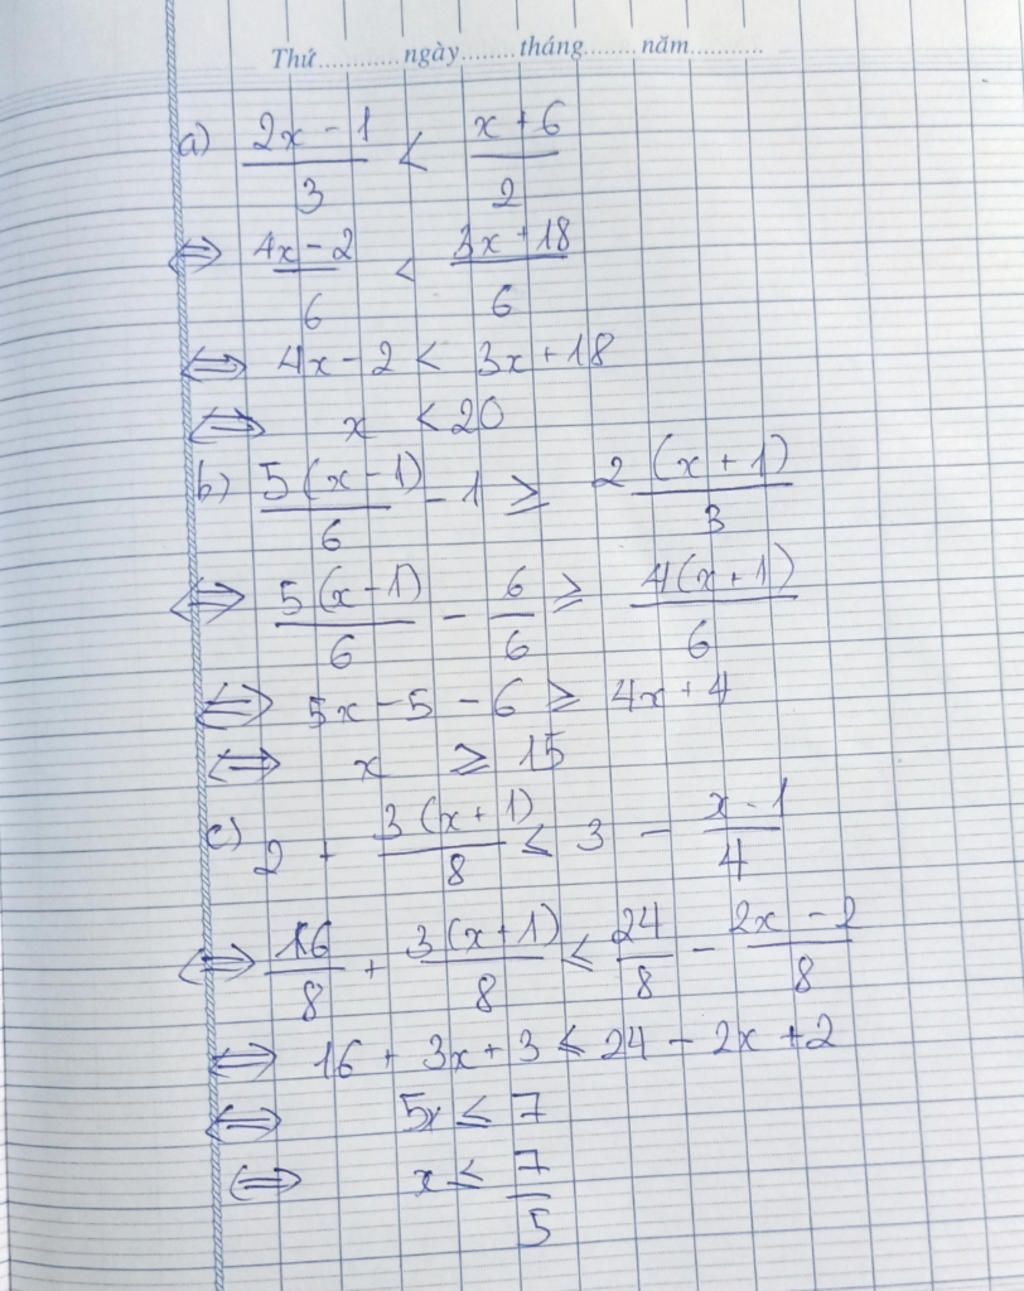 Thứ............ngày........tháng........năm...........
a) (2x - 1)/3 < (x + 6)/2
⇔ (4x - 2)/6 < (3x + 18)/6
⇔ 4x - 2 < 3x + 18
⇔ x < 20
b) 5(x - 1)/6 - 1 ≥ 2(x + 1)/3
⇔ 5(x - 1)/6 - 6/6 ≥ 4(x + 1)/6
⇔ 5x - 5 - 6 ≥ 4x + 4
⇔ x ≥ 15
c) 2 + 3(x + 1)/8 ≤ 3 - (x - 1)/4
⇔ 16/8 + 3(x + 1)/8 ≤ 24/8 - (2x - 2)/8
⇔ 16 + 3x + 3 ≤ 24 - 2x + 2
⇔ 5x ≤ 7
⇔ x ≤ 7/5